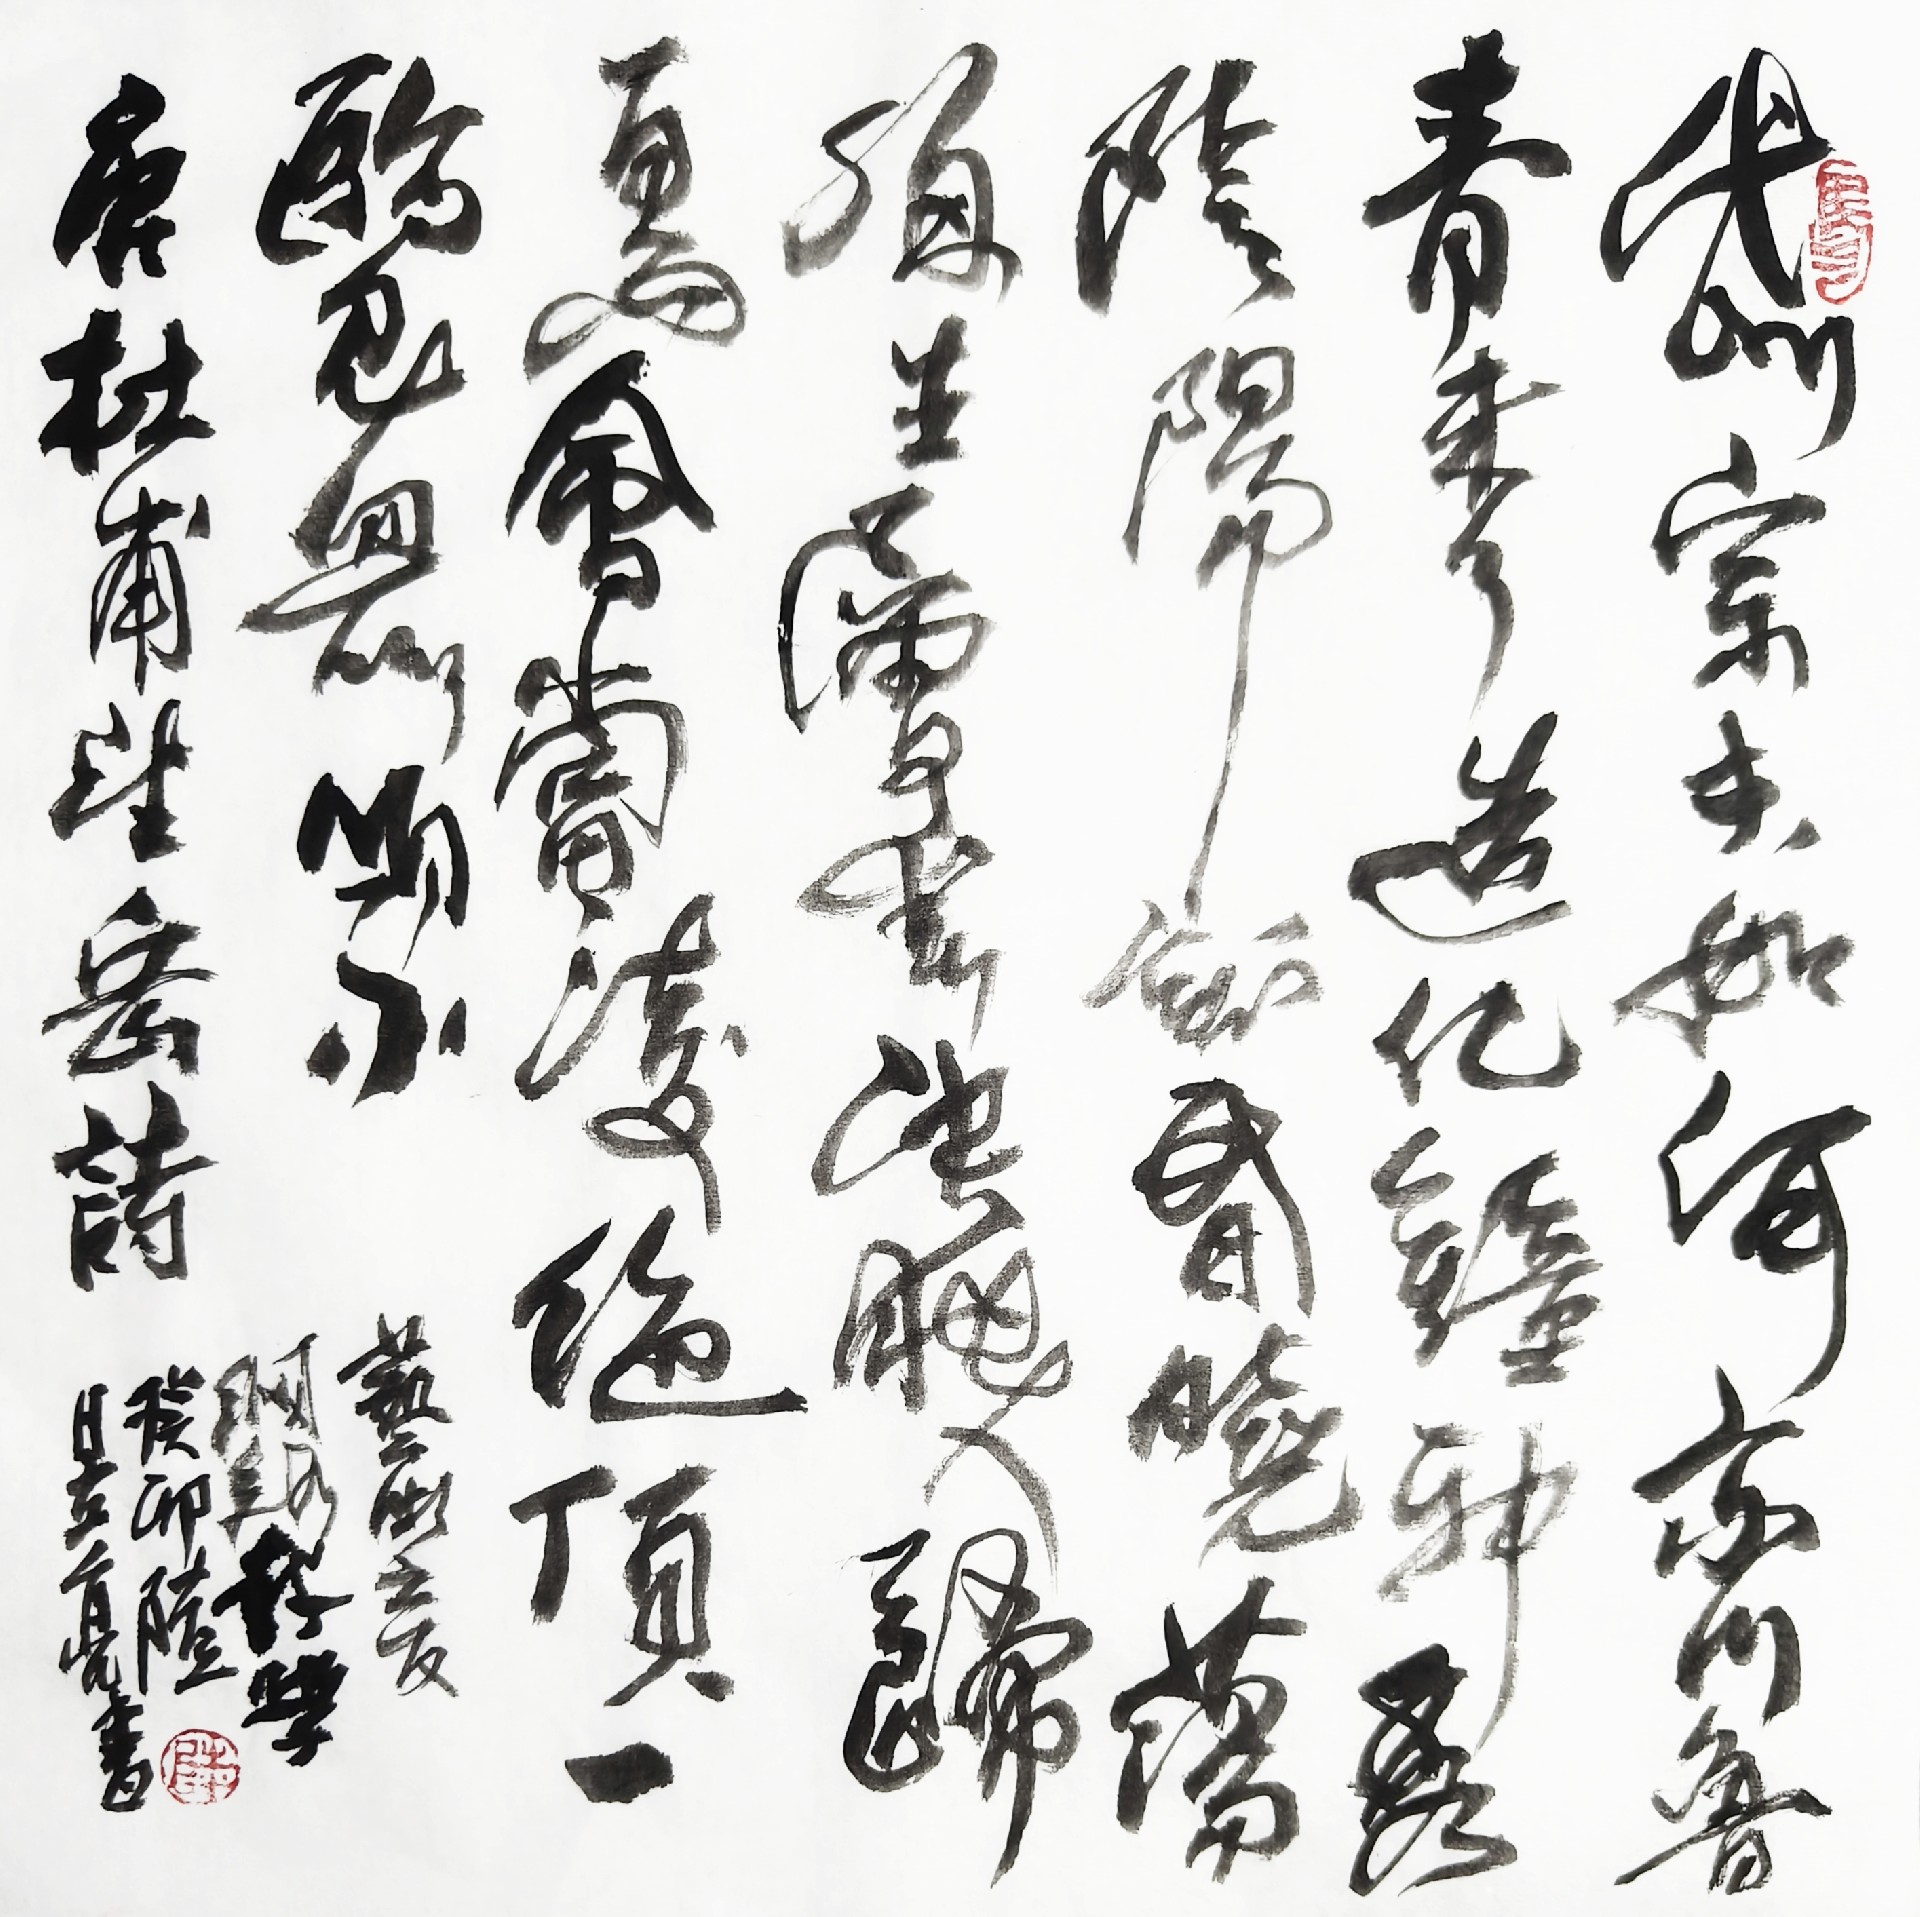 岱宗夫如何齐魯
青未了造化鐘神秀
陰陽割昏曉蕩
胸生層雲決眥入歸
鳥會當凌絕頂一
覽眾山小
唐杜甫望岳詩
藝術之友
癸卯陸
亮書